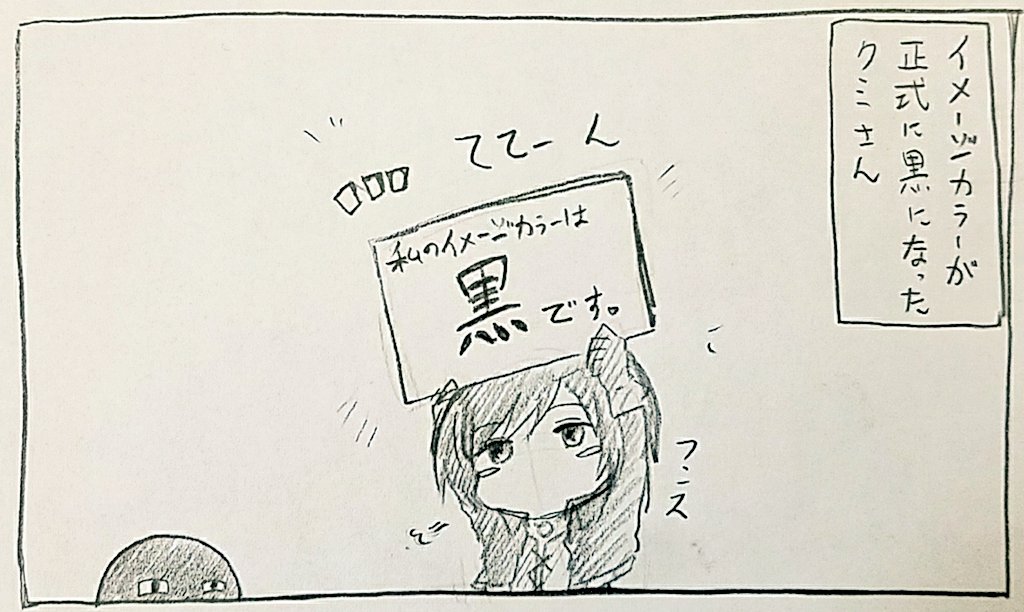 イメージカラーが
正式に黒になった
クミさん
ててーん
私のイメージカラーは
黒です。
フンス